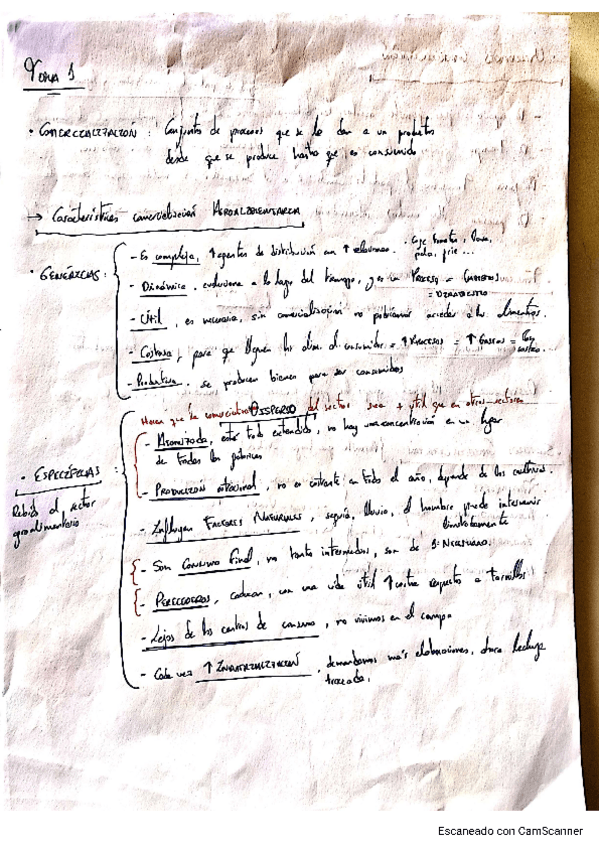 Tema 1
• COMERCIALIZACIÓN : Conjunto de procesos que se le dan a un producto
desde que se produce hasta que es consumido
→ Características comercialización AGROALIMENTARIA
• GENÉRICAS :
- Es compleja, ↑ agentes de distribución con ↑ relaciones.
- Dinámica, evoluciona a lo largo del tiempo, y es un PROCESO = CAMBIOS
= DINAMISMO
- Útil, es necesaria, sin comercialización no podríamos acceder a los alimentos.
- Costosa, para que lleguen los alim. al consumidor = ↑ PROCESOS = ↑ GASTOS =
- Productiva. se producen bienes para ser consumidos
• ESPECÍFICAS :
Debido al sector
agroalimentario
Hacen que la comercialización del sector sea + útil que en otros sectores
DISPERSO
- Atomizada, esta todo extendido, no hay una concentración en un lugar
de todas las fábricas
- PRODUCCIÓN estacional, no es constante en todo el año, depende de los cultivos.
- Influyen FACTORES NATURALES, sequía, lluvia, el hombre puede intervenir
limitadamente
- Son CONSUMO final, no tanto intermedios, son de 1ª NECESIDAD.
- PERECEDEROS, caducan, con una vida útil ↑ corta respecto a tornillos
- Lejos de los centros de consumo, no vivimos en el campo
- Cada vez ↑ INDUSTRIALIZACIÓN, demandamos más elaboraciones, lechuga
troceada.
Escaneado con CamScanner